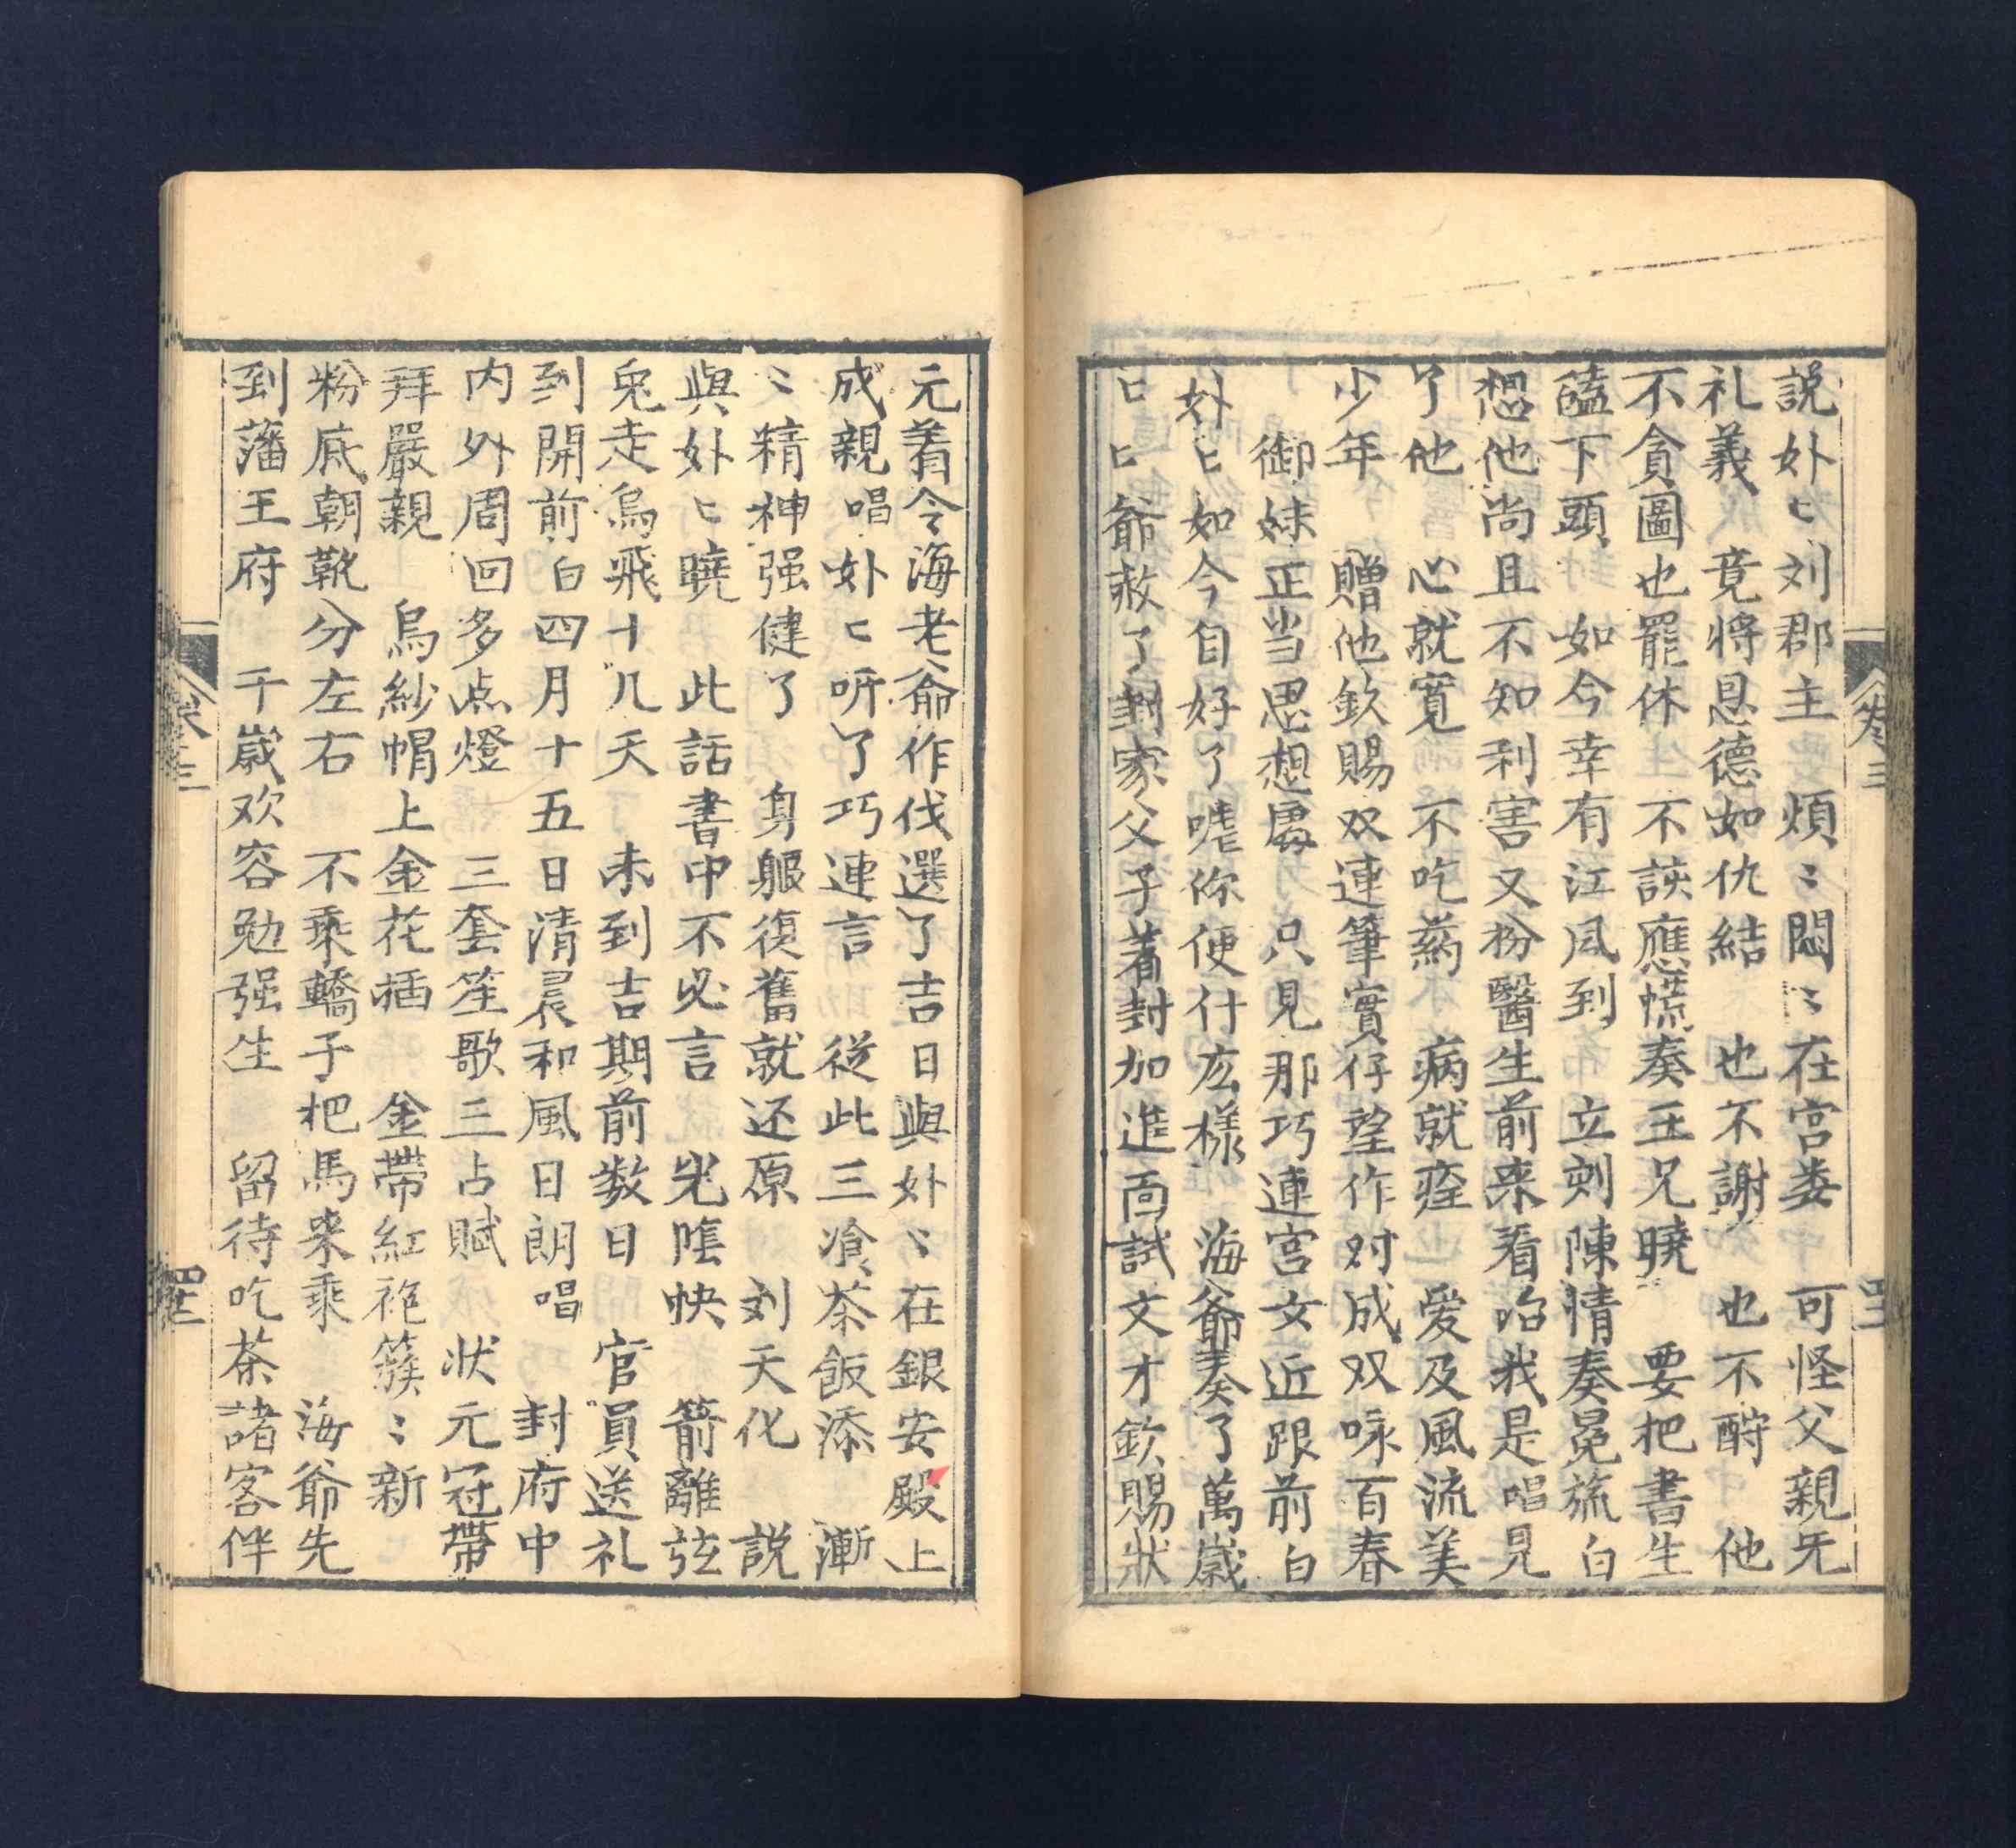 說外ヒ刘郡主　煩〻悶〻在宫娄　可怪父親无
礼義　竟將恩德如仇結　也不謝　也不酧　他
不貪圖也罷休　不該應慌奏王兄曉　要把書生
磕下頭　如今幸有江風到　立刻陳情奏冕旒白
想他尚且不知利害又扮醫生前来看治我是唱見
了他　心就寬　不吃藥　病就痊　愛及風流美
少年　贈他欽賜双連筆實仔望作对成双咏百春
御妹正当思想處　只見那巧連宫女近跟前白
外ヒ如今自好了嗄你便什庅樣　海爺奏了萬歲
ヒヒ爺赦了劉家父子着封加進面試文才欽賜狀
元着令海老爺作伐選了吉日與外〻在銀安殿上
成親唱外ヒ听了巧連言　從此三飡茶飯添　漸
〻精神强健了　身軀復舊就还原　刘天化　説
與外ヒ曉　此話書中不必言　光隂快　箭離弦
兔走烏飛十几天　未到吉期前数日　官員送礼
到開前白四月十五日清晨和風日朗唱　封府中
内外周回多点燈　三套笙歌三占賦　状元冠帶
拜嚴親　烏紗帽上金花插　金帶紅袍簇〻新
粉底朝靴分左右　不乘轎子把馬来乘　海爺先
到藩王府　千歲欢容勉强生　留待吃茶諸客伴
卷三